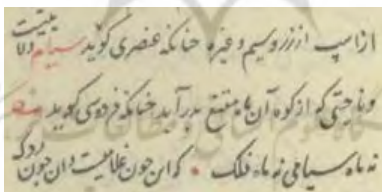 از اسب از زر و سیم و غیره چنانکه عنصری گوید سیام ولا
و ناحیتی که از کوه آن ماه مقنع بدر آید چنانکه فردوسی گوید
نه ماه سیامی نه ماه فلک • که این چون غلامیست و آن چون